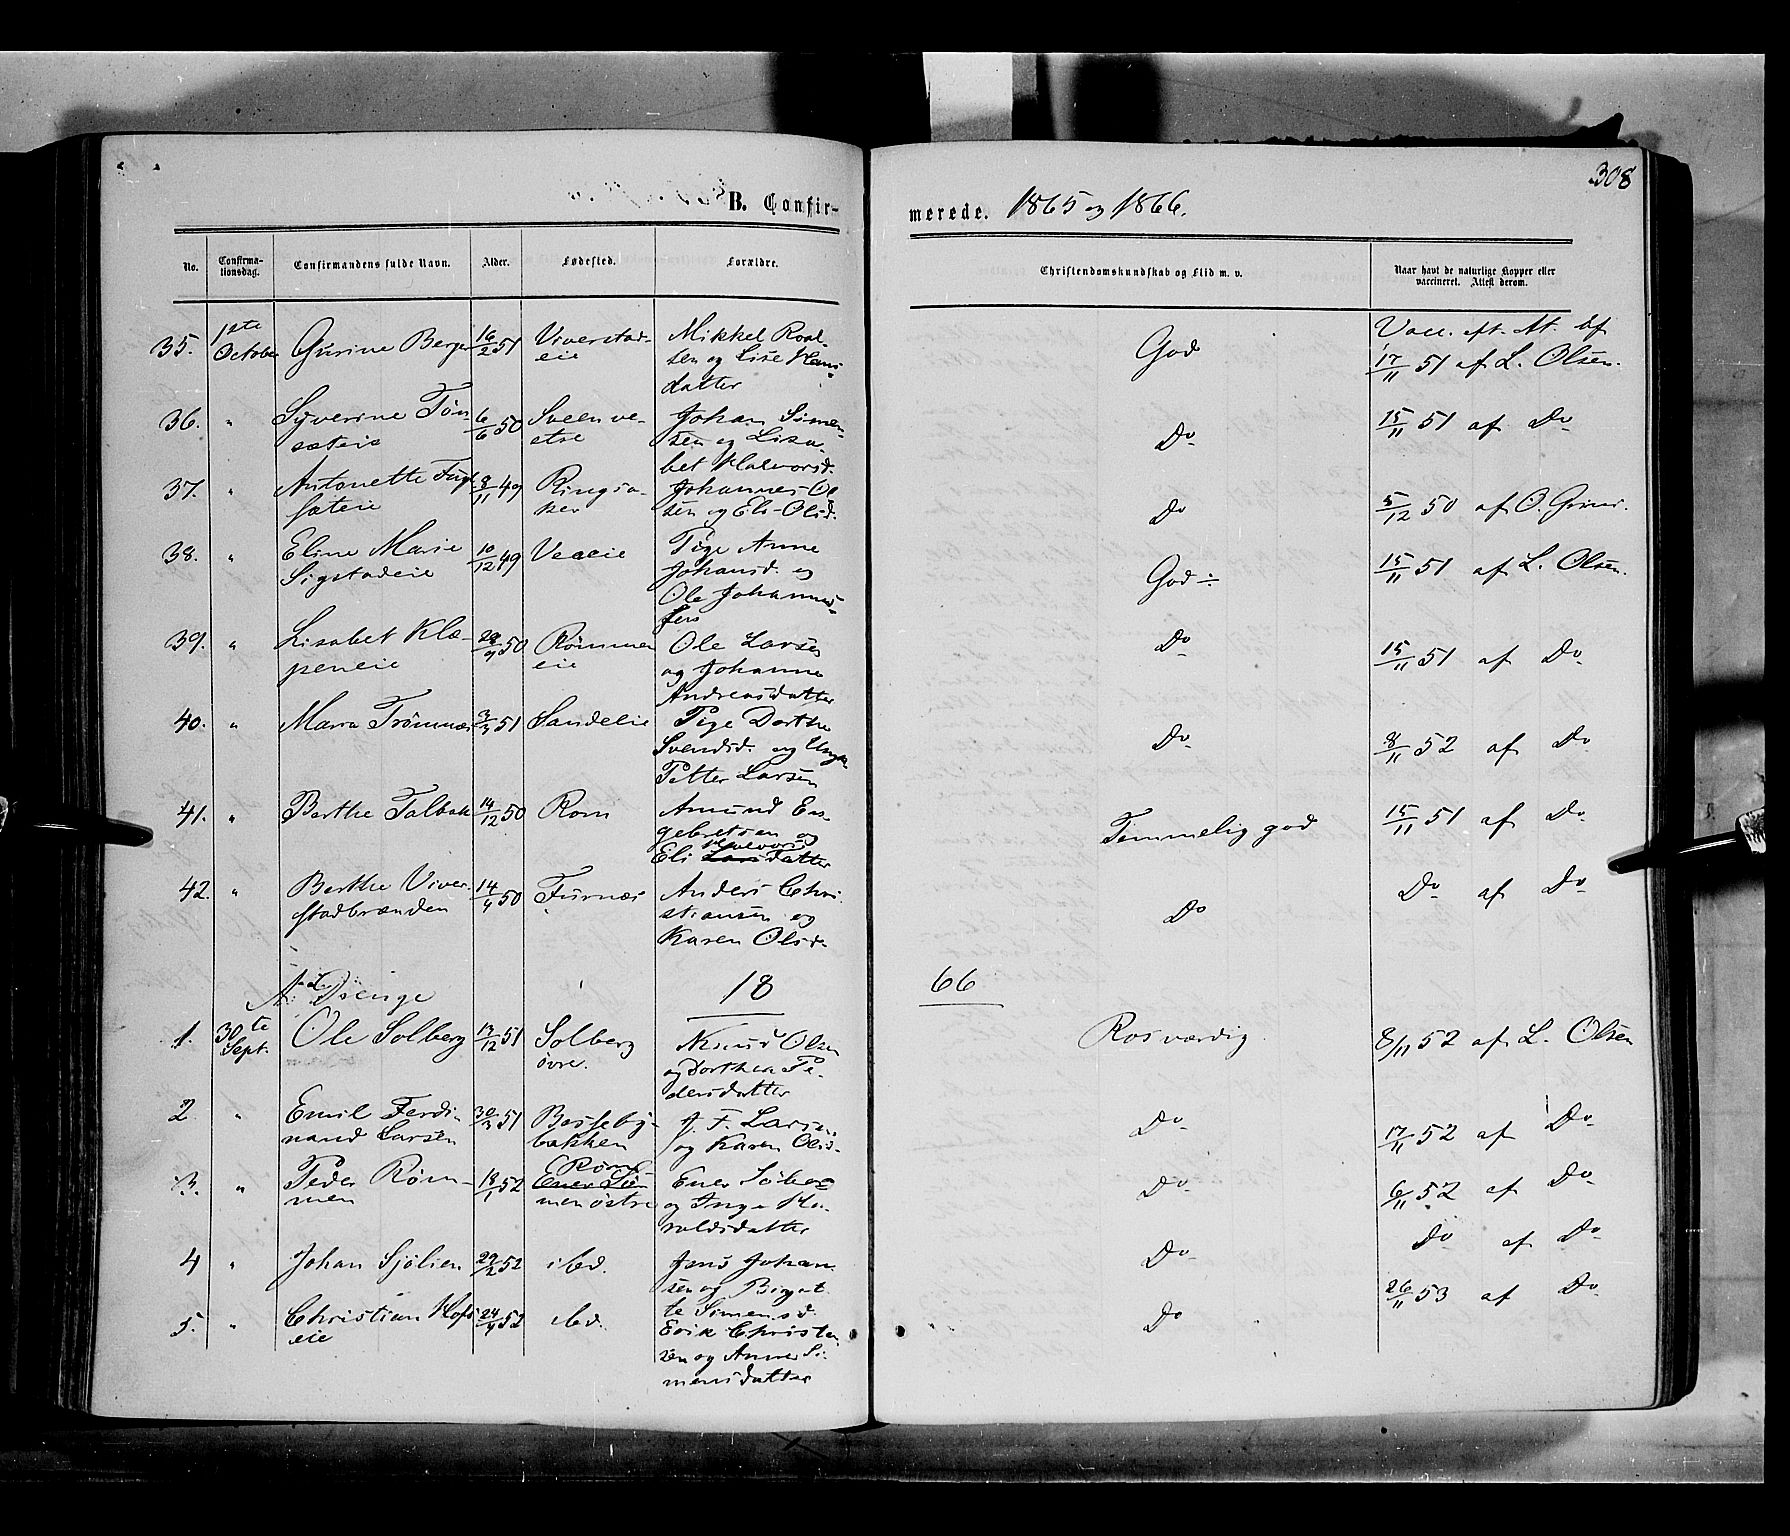 308
B. Confirmerede. 1865 og 1866.
No. Confirmationsdag. Confirmandens fulde Navn. Alder. Fødested. Forældre. Christendomskundskab og Flid m. v. Naar havt de naturlige Kopper eller vaccineret. Attest derom.
35. 1ste October Gurine Berger 16/2 51 Viverstadeie Mikkel Roalsen og Lise Hansdatter God Vacc. eft. Att. af 17/11 51 af L. Olsen.
36. " Syverine Tønsæteie 6/6 50 Sveen vestre Johan Simensen og Lisabet Halvorsd. Do 15/11 51 af Do
37. " Antonette Fugl-sæteie 8/11 49 Ringsaker Johannes Olsen og Eli Olsd. Do 5/12 50 af O. Grini.
38. " Eline Marie Sigstadeie 10/12 49 Veaeie Pige Anne Johansd. og Ole Johannessen God ÷ 15/11 51 af L. Olsen.
39. " Lisabet Klæpeneie 50 Rømmen eie Ole Larsen og Johanne Andreasdatter Do 15/11 51 af Do
40. " Maria Trømnæs 51 Sandeeie Pige Dorthe Svendsd. og Ungk. Petter Larsen Do 8/11 52 af Do
41. " Berthe Talbak 14/12 50 Rom Amund Engebretsen og Eli Halvorsdatter Temmelig god 15/11 51 af Do
42. " Berthe Viverstadbrænden 14/4 50 Furnæs Anders Christiansen og Karen Olsd. Do Do af Do
18 66
A: Drenge
1. 30te Sept. Ole Solberg 13/12 51 Solberg øvre. Knud Olsen og Dorthea Pedersdatter Rosværdig 8/11 52 af L. Olsen
2. " Emil Ferdinand Larsen 51 Bassebybakken J. F. Larsen og Karen Olsd. Do 17/11 52 af Do
3. " Peder Rømmen 18/1 52 Rømmen østre Ener og Inge Haraldsdatter Do 6/11 52 af Do
4 " Johan Sjølien 29/2 52 ibd. Jens Johansen og Birgitte Simensd. Do Do af Do
5. " Christian Hofseie 24/4 52 ibd. Erik Christensen og Anne Simensdatter Do 26/11 53 af Do